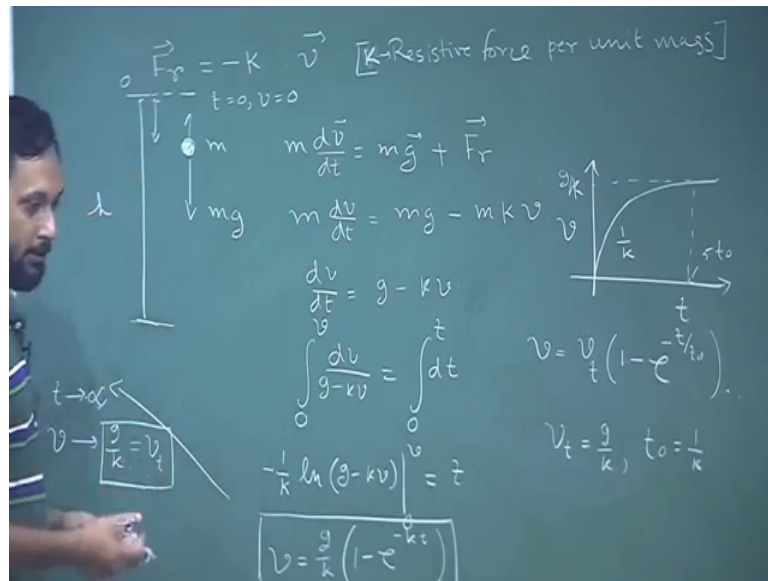 F⃗r = -k v⃗ [k→Resistive force per unit mass]
0
t=0, v=0
m
m dv⃗/dt = mg⃗ + F⃗r
h
mg
m dv/dt = mg - mkv
dv/dt = g - kv
∫₀ᵛ dv/(g-kv) = ∫₀ᵗ dt
-1/k ln (g-kv)|₀ᵛ = t
v = g/k (1-e^{-kt})
t→∝
v → g/k = v_t
g/k
v
1/k
5t₀
t
v = v_t (1-e^{-t/t₀})..
v_t = g/k, t₀ = 1/k